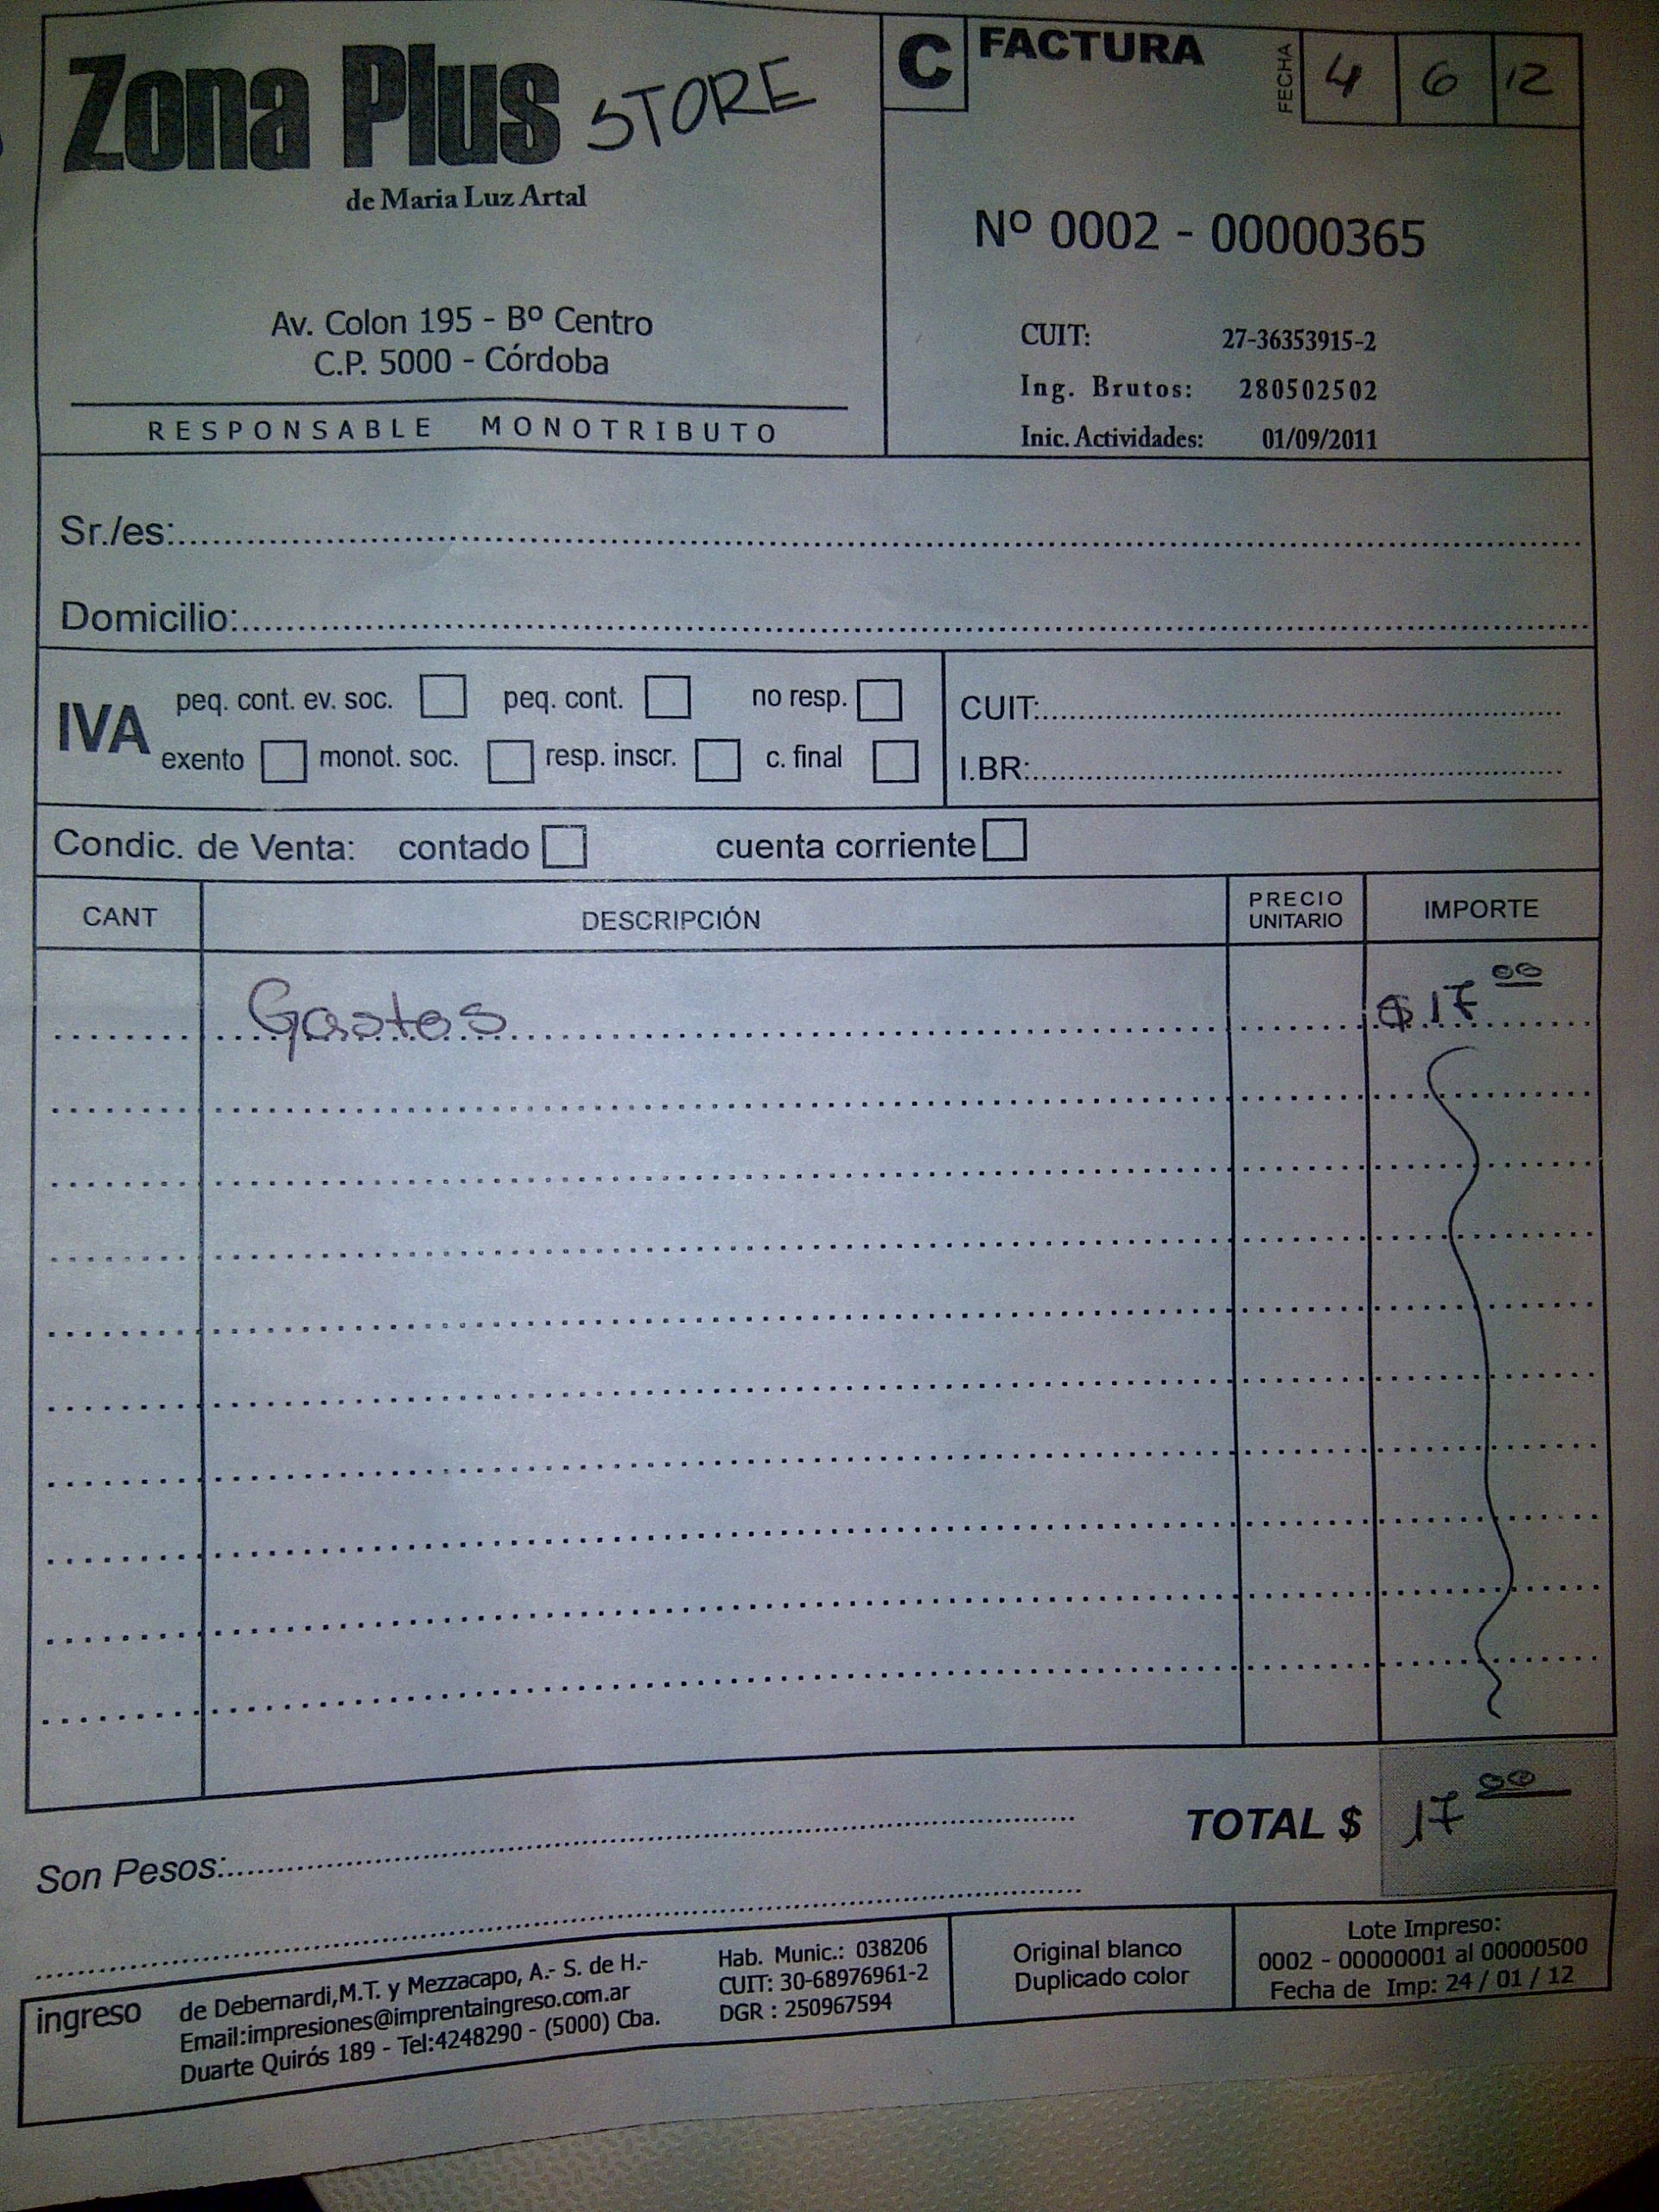 Zona Plus STORE
de Maria Luz Artal
Av. Colon 195 - Bº Centro
C.P. 5000 - Córdoba
RESPONSABLE MONOTRIBUTO
C FACTURA
FECHA 4 6 12
Nº 0002 - 00000365
CUIT: 27-36353915-2
Ing. Brutos: 280502502
Inic. Actividades: 01/09/2011
Sr./es:
Domicilio:
IVA peq. cont. ev. soc. peq. cont. no resp.
exento monot. soc. resp. inscr. c. final
CUIT:
I.BR:
Condic. de Venta: contado cuenta corriente
CANT DESCRIPCIÓN PRECIO UNITARIO IMPORTE
Gastos $17 00
TOTAL $ 17 00
Son Pesos:
ingreso
de Debernardi,M.T. y Mezzacapo, A.- S. de H.-
Email:impresiones@imprentaingreso.com.ar
Duarte Quirós 189 - Tel:4248290 - (5000) Cba.
Hab. Munic.: 038206
CUIT: 30-68976961-2
DGR : 250967594
Original blanco
Duplicado color
Lote Impreso:
0002 - 00000001 al 00000500
Fecha de Imp: 24 / 01 / 12